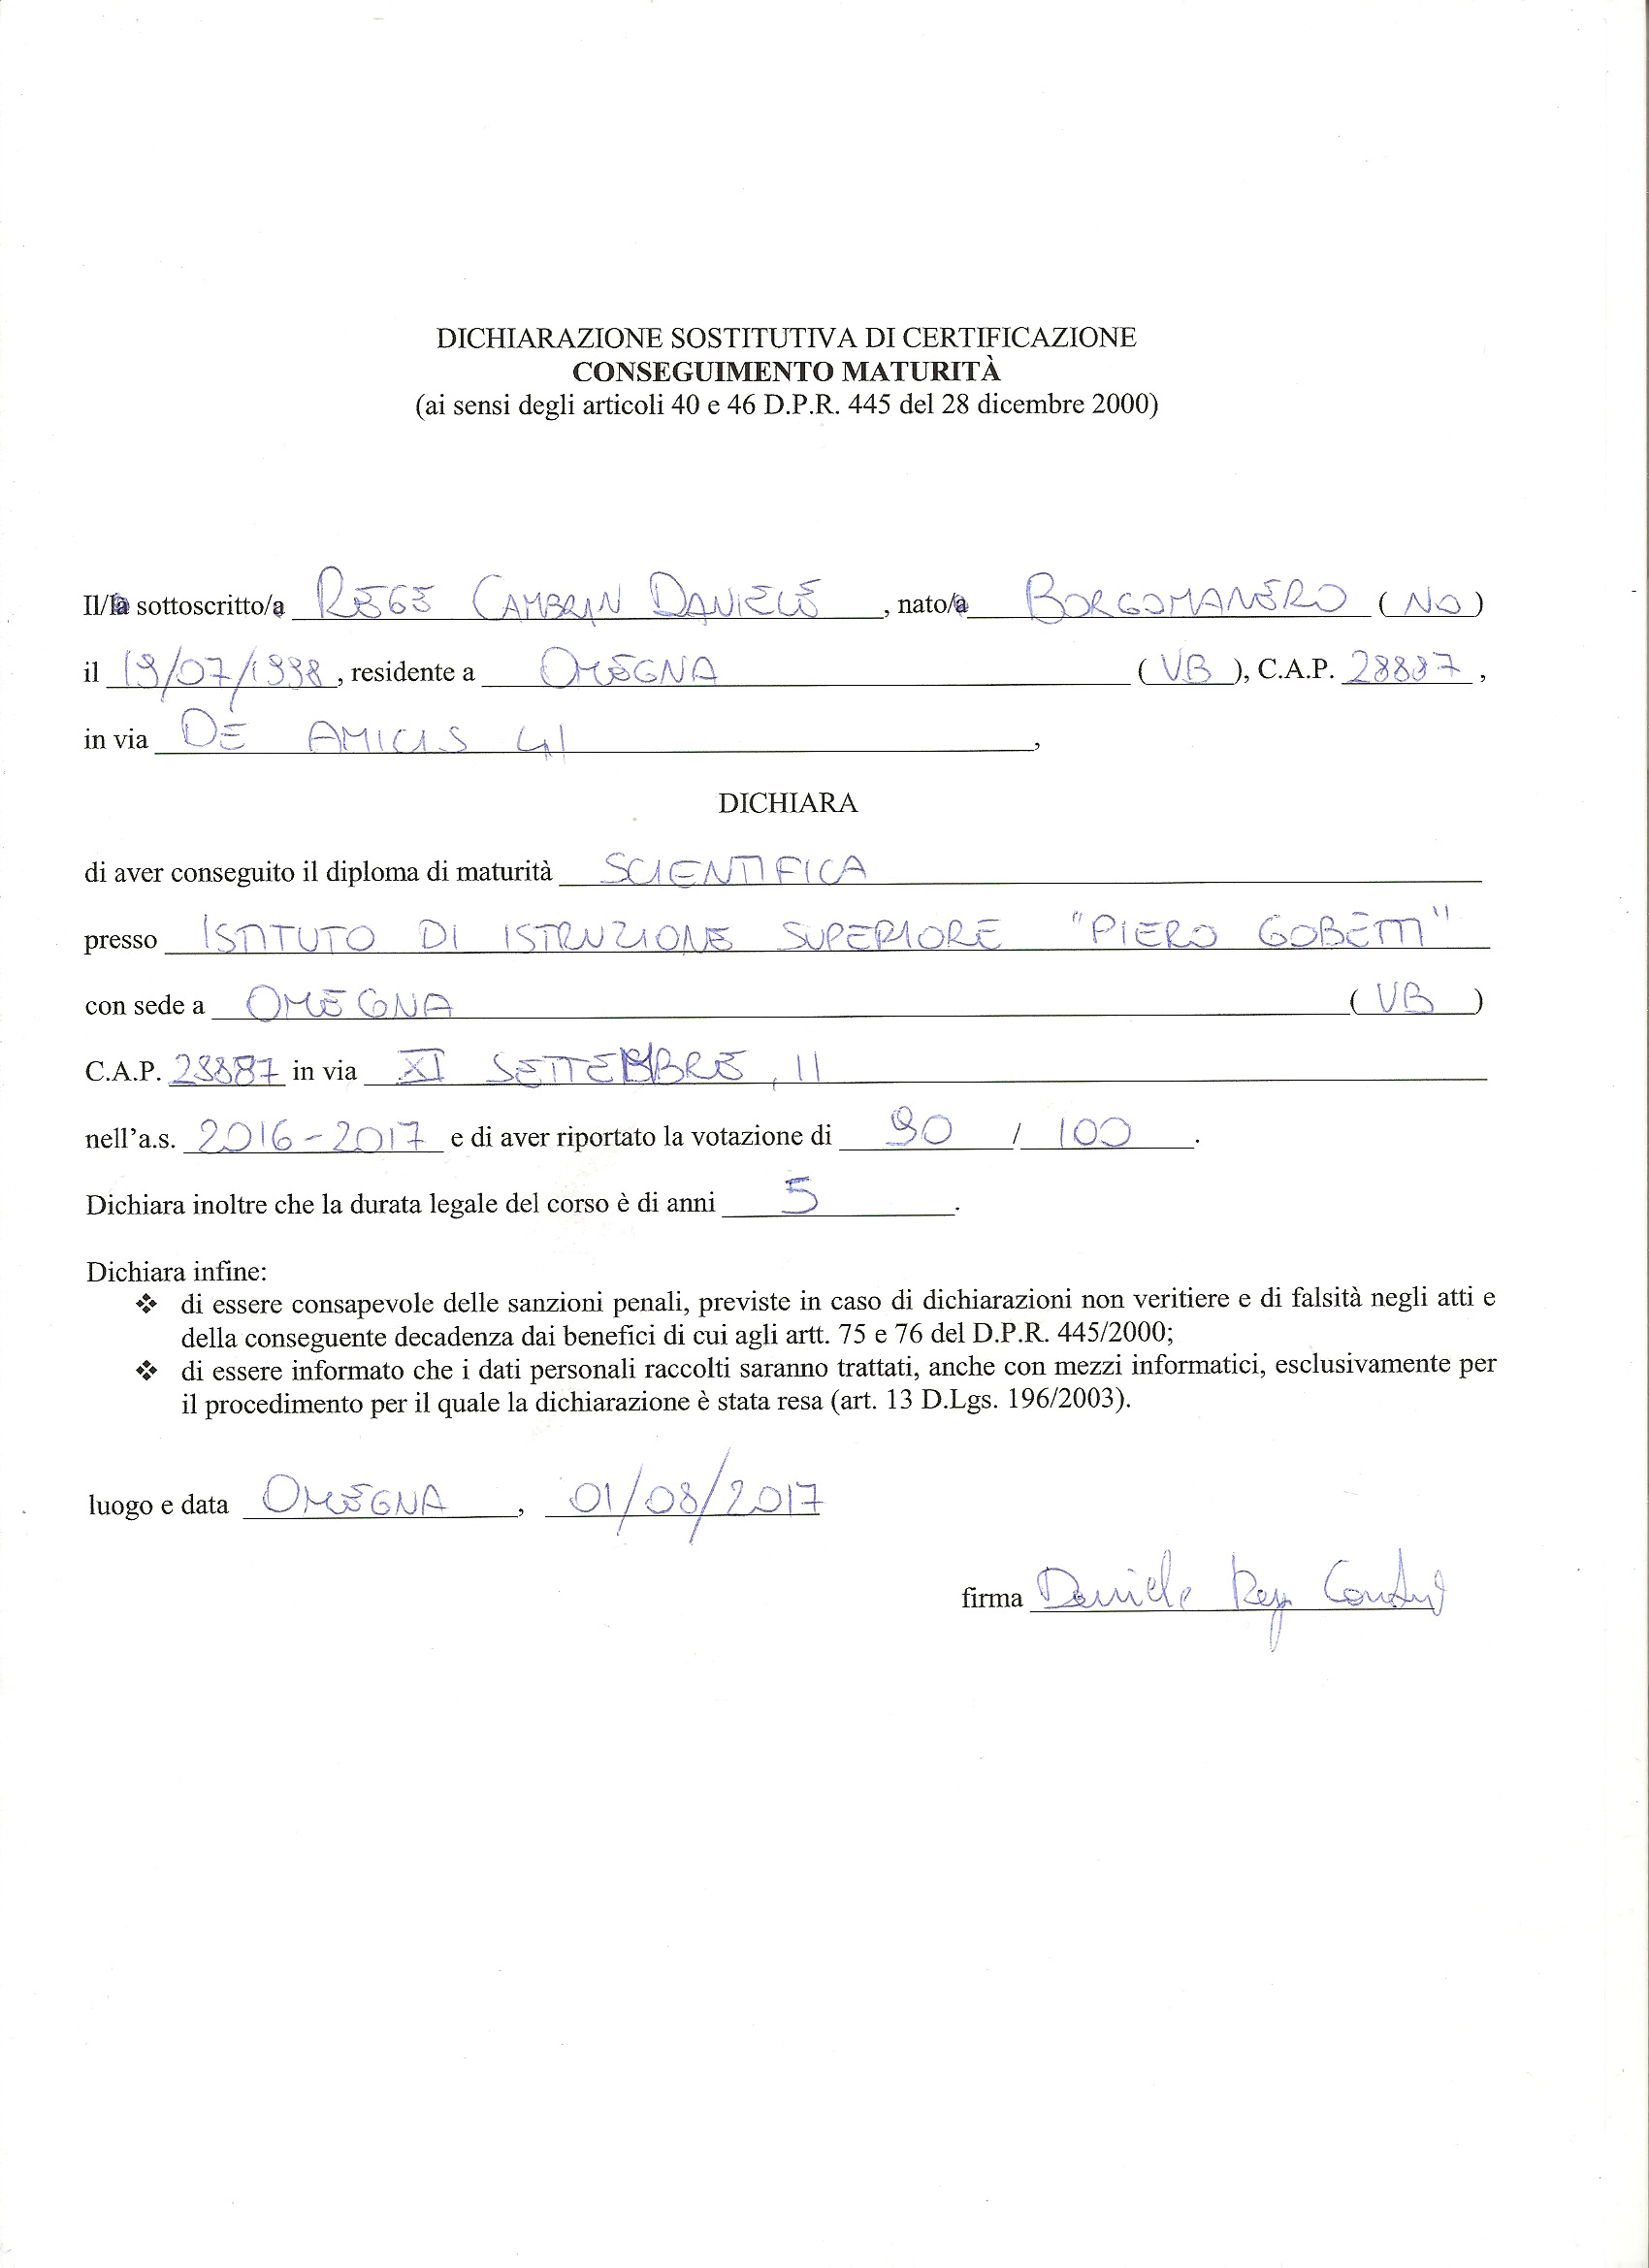 DICHIARAZIONE SOSTITUTIVA DI CERTIFICAZIONE
CONSEGUIMENTO MATURITÀ
(ai sensi degli articoli 40 e 46 D.P.R. 445 del 28 dicembre 2000)
Il/la sottoscritto/a REGE CAMBRIN DANIELE, nato/a BORGOMANERO (NO)
il 19/07/1998, residente a OMEGNA (VB), C.A.P. 28887,
in via DE AMICIS 41,
DICHIARA
di aver conseguito il diploma di maturità SCIENTIFICA
presso ISTITUTO DI ISTRUZIONE SUPERIORE "PIERO GOBETTI"
con sede a OMEGNA (VB)
C.A.P. 28887 in via XI SETTEMBRE, 11
nell'a.s. 2016-2017 e di aver riportato la votazione di 90 / 100.
Dichiara inoltre che la durata legale del corso è di anni 5.
Dichiara infine:
❖ di essere consapevole delle sanzioni penali, previste in caso di dichiarazioni non veritiere e di falsità negli atti e
della conseguente decadenza dai benefici di cui agli artt. 75 e 76 del D.P.R. 445/2000;
❖ di essere informato che i dati personali raccolti saranno trattati, anche con mezzi informatici, esclusivamente per
il procedimento per il quale la dichiarazione è stata resa (art. 13 D.Lgs. 196/2003).
luogo e data OMEGNA, 01/08/2017
firma Daniele Rege Cambrin